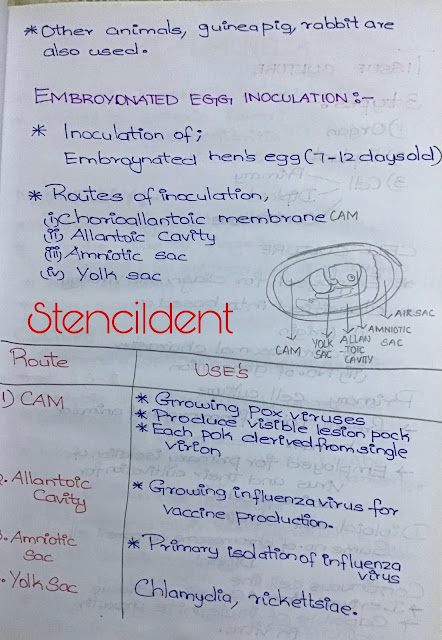 * Other animals, guineapig, rabbit are
also used.
EMBROYONATED EGG, INOCULATION :-
* Inoculation of;
Embroynated hen's egg (7-12 days old)
* Routes of inoculation,
(i) Chorioallantoic membrane CAM
(ii) Allantoic cavity
(iii) Amniotic sac
(iv) Yolk sac
AIR SAC
AMNIOTIC
SAC
ALLAN
-TOIC
CAVITY
YOLK
SAC
CAM
Stencildent
Route USE'S
1) CAM * Growing pox viruses
* Produce visible lesion pock
* Each pok derived from single
virion
2. Allantoic * Growing influenza virus for
Cavity vaccine production.
3. Amniotic * Primary isolation of influenza
sac virus
. Yolk sac Chlamydia, rickettsiae.